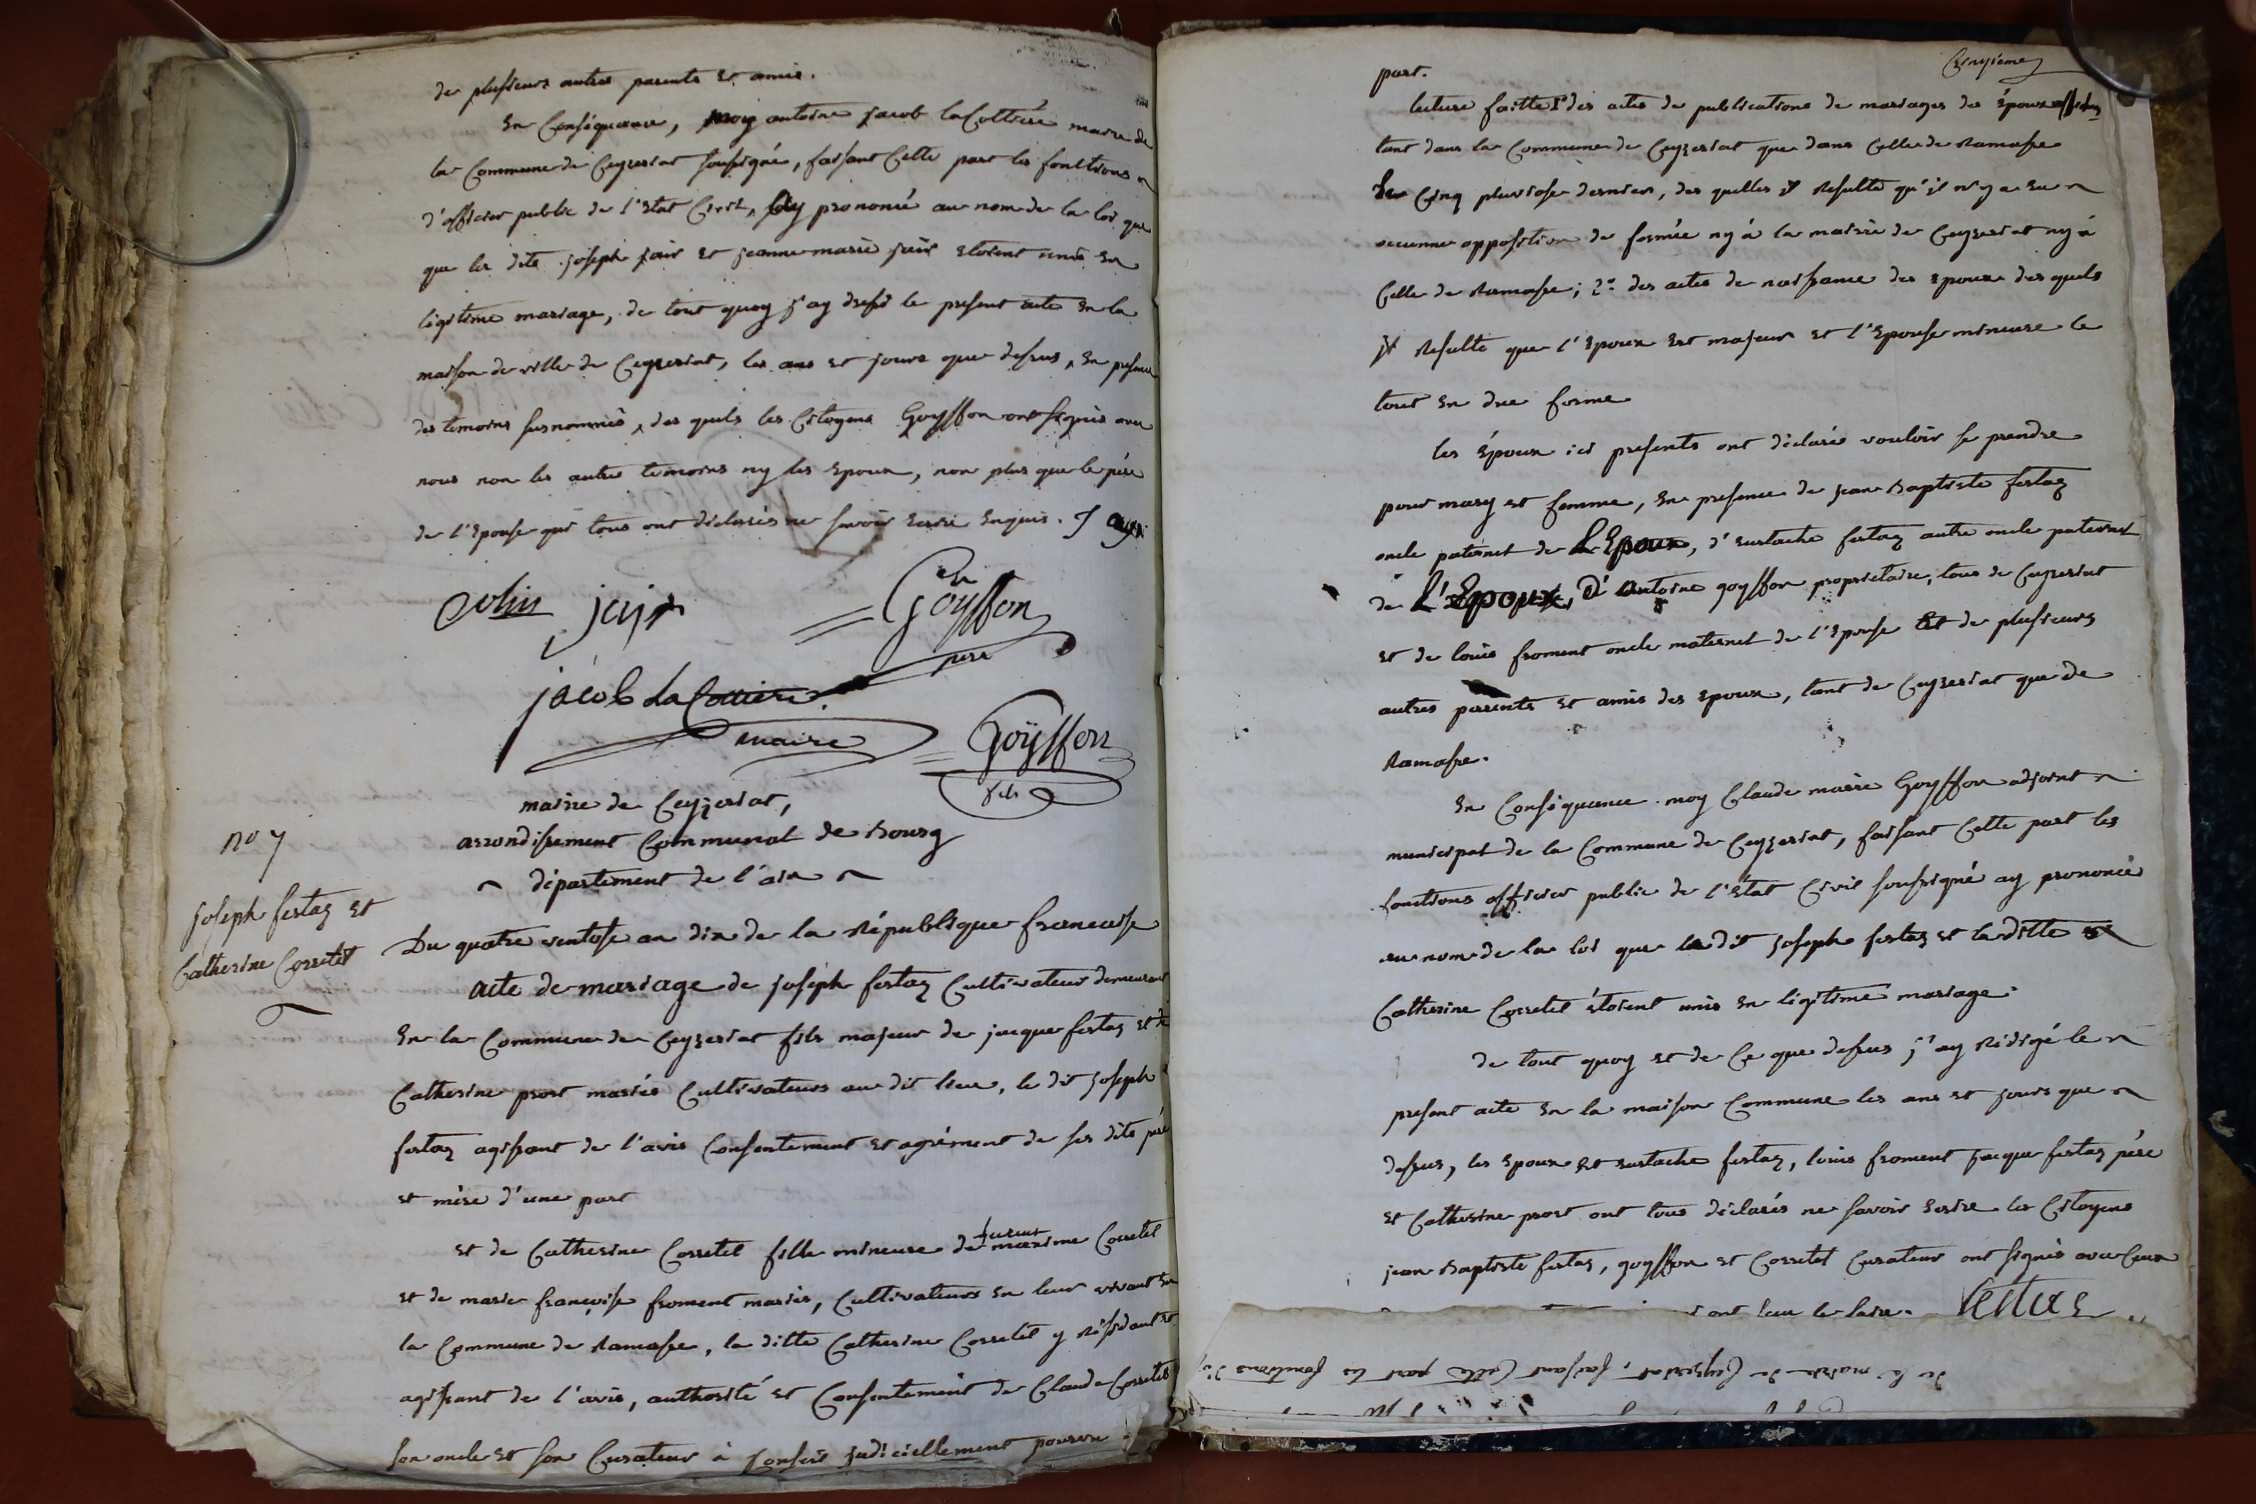 de plusieurs autres parents et amis.
En Conséquence, moy antoine jacob laCottiere maire de
la Commune de Ceyzeriat soussigné, faisant Cette part les fonctions
d'officier public de l'Etat Civil, ay prononcé au nom de la loi que
que les dits joseph jair et jeanne marie jair etoient unis en
légitime mariage, de tout quoy j'ay dressé le present acte en la
maison de ville de Ceyzeriat, les ans et jours que dessus, En presence
des temoins susnommés, des quels les Citoyens Goyffon ont signés avec
nous non les autres temoins ny les Epoux, non plus que le père
de l'Epouse qui tous ont déclarés ne savoir Ecrire Enquis.
Colin jair Goyffon
pere
jacob La Cottiere
maire
Goyffon
fils
mairie de Ceyzeriat,
arrondissement Communal de Bourg
département de l'ain
no 7
joseph festaz et
Catherine Corretel
Du quatre ventose an dix de la République francaise
acte de mariage de joseph festaz Cultivateur demeurant
En la Commune de Ceyzeriat fils majeur de jacque festaz et de
Catherine prost mariés Cultivateurs au dit lieu, le dit joseph
festaz agissant de l'avis Consentement et agrément de ses dits père
et mère d'une part
et de Catherine Corretel fille mineure de furent maxime Corretel
et de marie françoise froment mariés, Cultivateurs en leur vivant en
la Commune de Ramasse, la ditte Catherine Corretel y résidant et
agissant de l'avis, authorité et Consentement de Claude Corretel
son oncle et son Curateur à conseil judiciellement pourvu
Cinqieme
part.
lecture faitte 1° des actes de publications de mariages des époux
tant dans la Commune de Ceyzeriat que dans Celle de Ramasse
le Cinq pluviose dernier, des quelles il Resulte qu'il n'y a eu
aucunne opposition de formée ny à la mairie de Ceyzeriat ny à
Celle de Ramasse; 2° des actes de naissance des époux des quels
il Resulte que l'Epoux est majeur et l'Epouse mineure le
tout en due forme
les époux ici presents ont déclarés vouloir se prendre
pour mary et femme, En presence de jean Baptiste festaz
oncle paternel de L'Epoux, d'eustache festaz autre oncle paternel
de L'Epoux, D'antoine goyffon proprietaire, tous de Ceyzeriat
et de louis froment oncle maternel de l'Epouse Et de plusieurs
autres parents et amis des époux, tant de Ceyzeriat que de
Ramasse.
En Conséquence moy Claude marie Goyffon adjoint
municipal de la Commune de Ceyzeriat, faisant Cette part les
fonctions officier public de l'état Civil soussigné ay prononcé
au nom de la loi que le dit joseph festaz et la ditte
Catherine Corretel étoient unis en légitime mariage.
de tout quoy et de Ce que dessus j'ay Rédigé le
present acte en la maison Commune les ans et jours que
dessus, les époux et eustache festaz, louis froment jacque festaz père
et Catherine prost ont tous déclarés ne savoir Ecrire les Citoyens
jean Baptiste festaz, goyffon et Corretel Curateur ont signés avec
ont leu le faire. festaz
de la mairie de Ceyzeriat, faisant Cette part les fonctions